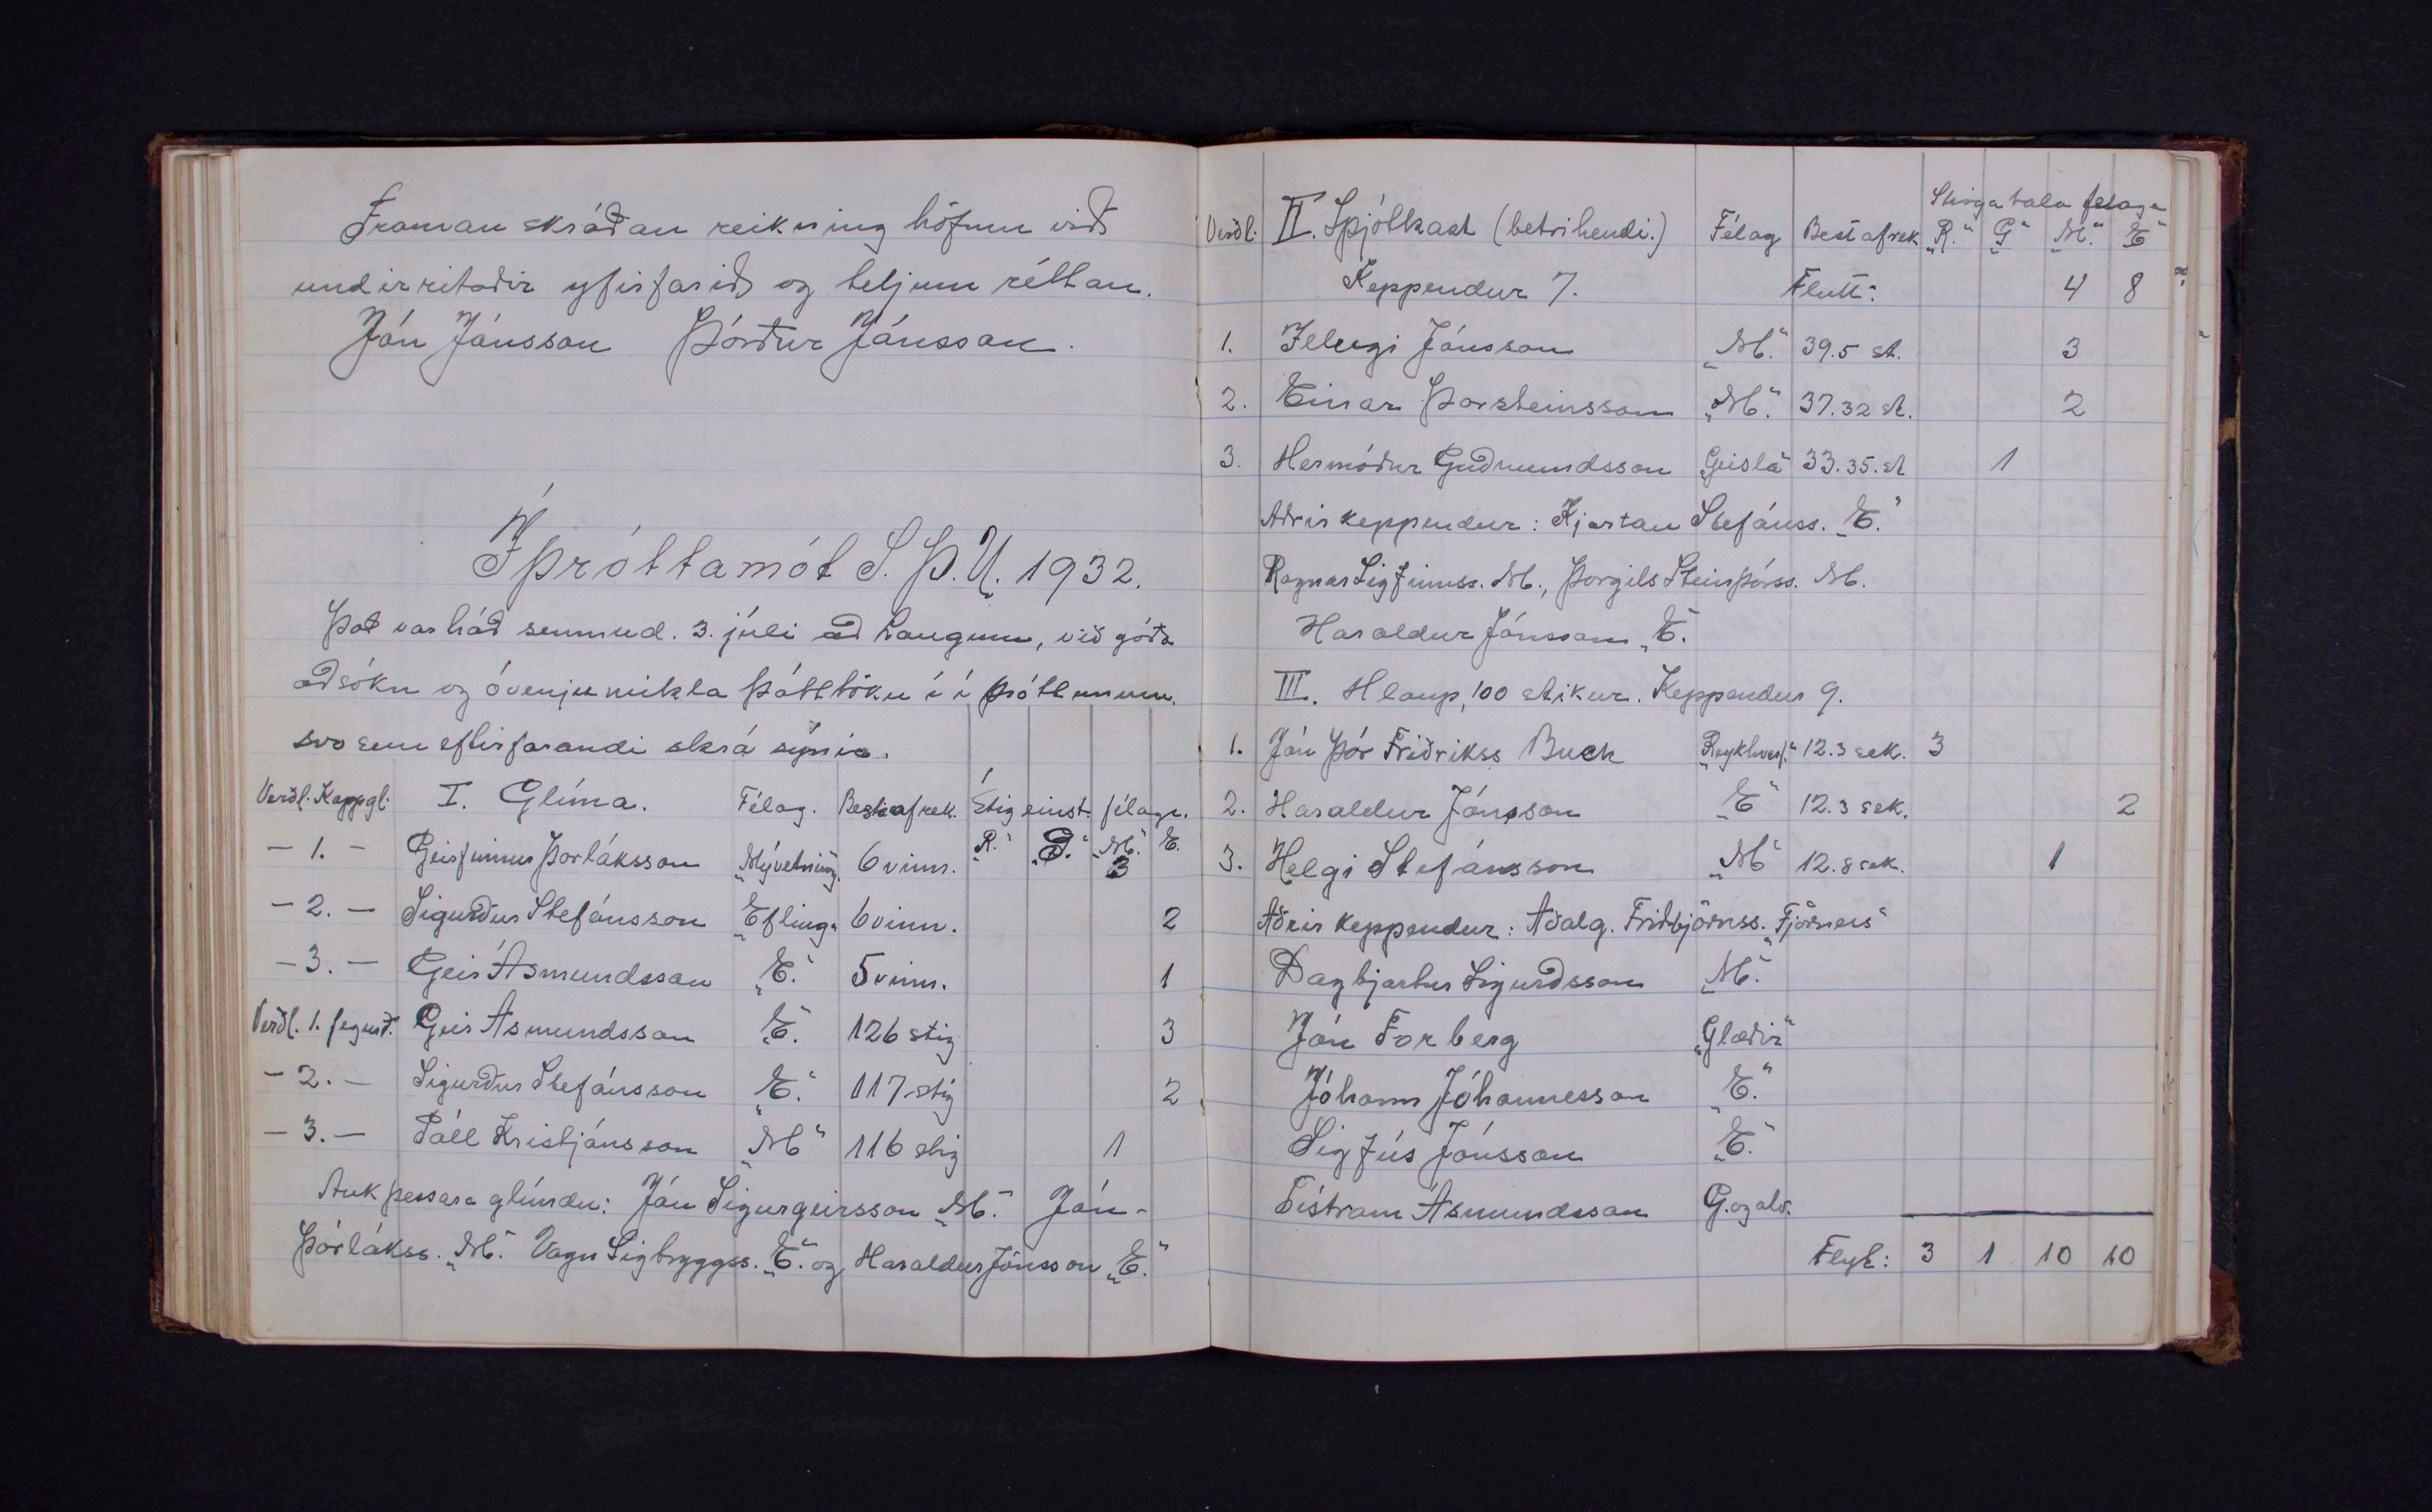 Framan skráðan reikning höfum við
undirritaðir yfirfarið og teljum réttan.
Jón Jónsson Þórður Jónsson.
Íþróttamót S.Þ.U. 1932.
Það var háð sunnud. 3. júlí að Laugum, við góða
aðsókn og óvenju mikla þátttöku í íþróttunum.
svo sem eftirfarandi skrá sýnir.
Verðl. Kappgl. I. Glíma. Félag. Besta afrek. Stig einst. félaga.
„R.“ „G.“ „M.“ E.
- 1. - Geirfinnur Þorláksson „Mývetning“ 6 vinn. 3
- 2. - Sigurður Stefánsson „Efling“ 6 vinn. 2
- 3. - Geir Ásmundsson „E.“ 5 vinn. 1
Verðl. 1. fegurð. Geir Ásmundsson „E.“ 126 stig 3
- 2. - Sigurður Stefánsson „E.“ 117 stig 2
- 3. - Páll Kristjánsson „M“ 116 stig 1
Auk þessara glímdu: Jón Sigurgeirsson „M.“ Jón-
Þórlákss. „M.“ Vagn Sigtryggss. „E.“ og Haraldur Jónsson „E.“
Stiga tala félaga
Verðl. II. Spjótkast (betri hendi.) Félag Best afrek „R.“ „G“ „M.“ „E“
Keppendur 7. Flutt: 4 8
1. Illugi Jónsson „M.“ 39.5 st. 3
2. Einar Þorsteinsson „M.“ 37.32 st. 2
3. Hermóður Guðmundsson „Geisla“ 33.35. st 1
Aðrir keppendur: Kjartan Stefánss. „E.“
Ragnar Sigfinnss. M., Þorgils Steinþórss. M.
Haraldur Jónsson „E.“
III. Hlaup, 100 stikur. Keppendur 9.
1. Jón Þór Friðrikss Buch „Reykhverf.“ 12.3 sek. 3
2. Haraldur Jónsson „E“ 12.3 sek. 2
3. Helgi Stefánsson „M“ 12.8 sek. 1
Aðrir keppendur: Aðalg. Friðbjörnss. „Fjörners“
Dagbjartur Sigurðsson „M.“
Jón Forberg „Glæðir“
Jóhann Jóhannesson „E.“
Sigfús Jónsson „E.“
Tístram Ásmundsson G.ogalv.
Flyt: 3 1 10 10